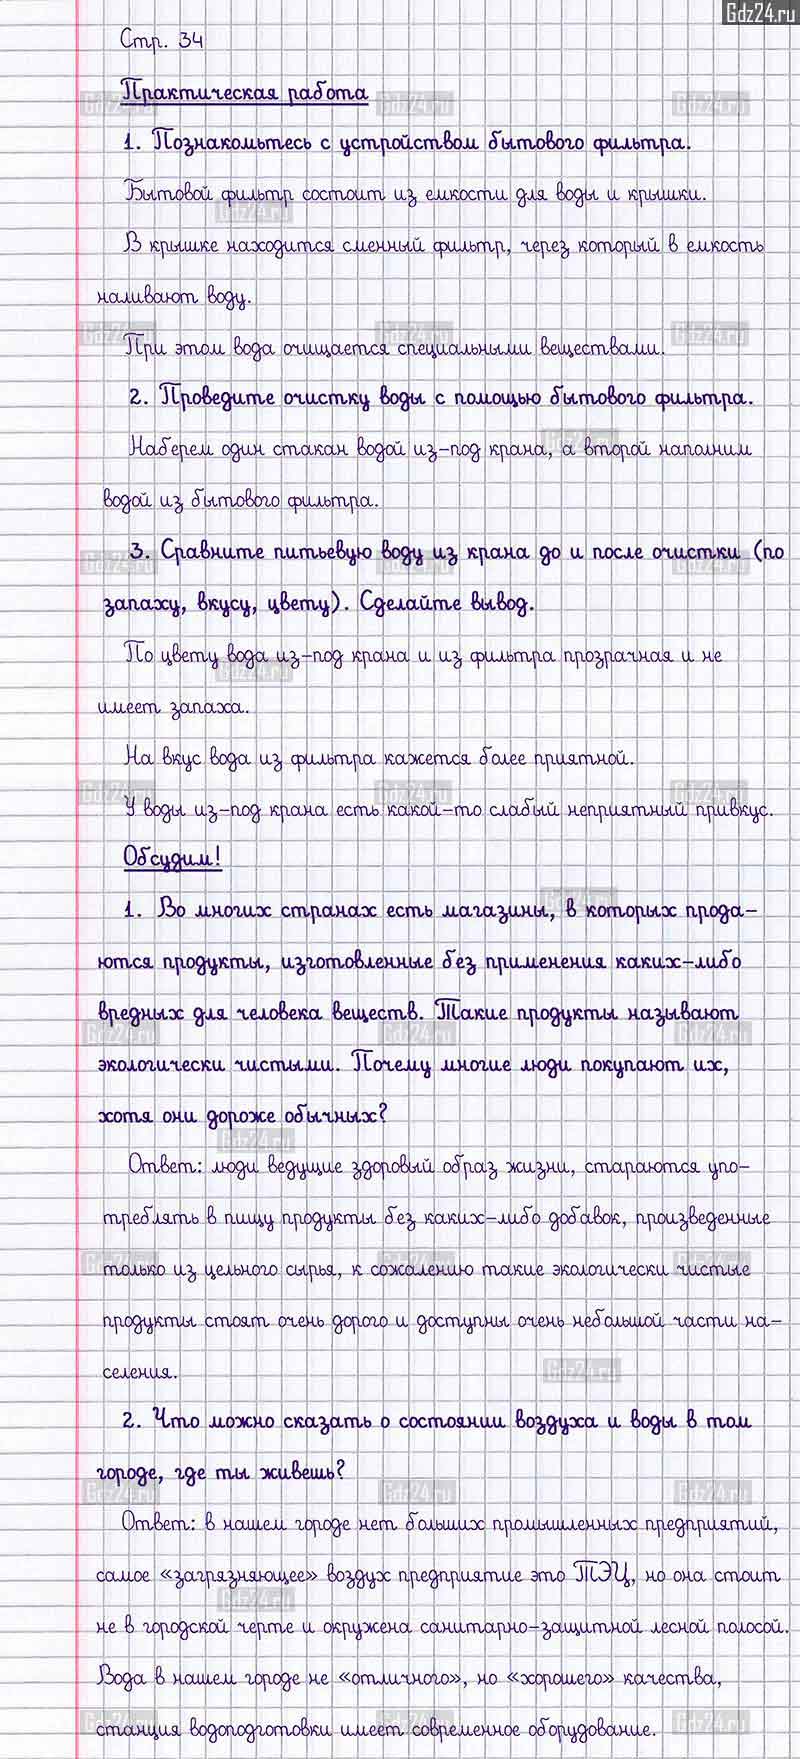 Gdz24.ru
Стр. 34
Практическая работа
1. Познакомьтесь с устройством бытового фильтра.
Бытовой фильтр состоит из емкости для воды и крышки.
В крышке находится сменный фильтр, через который в емкость
наливают воду.
При этом вода очищается специальными веществами.
2. Проведите очистку воды с помощью бытового фильтра.
Наберем один стакан водой из-под крана, а второй наполним
водой из бытового фильтра.
3. Сравните питьевую воду из крана до и после очистки (по
запаху, вкусу, цвету). Сделайте вывод.
По цвету вода из-под крана и из фильтра прозрачная и не
имеет запаха.
На вкус вода из фильтра кажется более приятной.
У воды из-под крана есть какой-то слабый неприятный привкус.
Обсудим!
1. Во многих странах есть магазины, в которых прода-
ются продукты, изготовленные без применения каких-либо
вредных для человека веществ. Такие продукты называют
экологически чистыми. Почему многие люди покупают их,
хотя они дороже обычных?
Ответ: люди ведущие здоровый образ жизни, стараются упо-
треблять в пищу продукты без каких-либо добавок, произведенные
только из цельного сырья, к сожалению такие экологически чистые
продукты стоят очень дорого и доступны очень небольшой части на-
селения.
2. Что можно сказать о состоянии воздуха и воды в том
городе, где ты живешь?
Ответ: в нашем городе нет больших промышленных предприятий,
самое «загрязняющее» воздух предприятие это ТЭЦ, но она стоит
не в городской черте и окружена санитарно-защитной лесной полосой.
Вода в нашем городе не «отличного», но «хорошего» качества,
станция водоподготовки имеет современное оборудование.